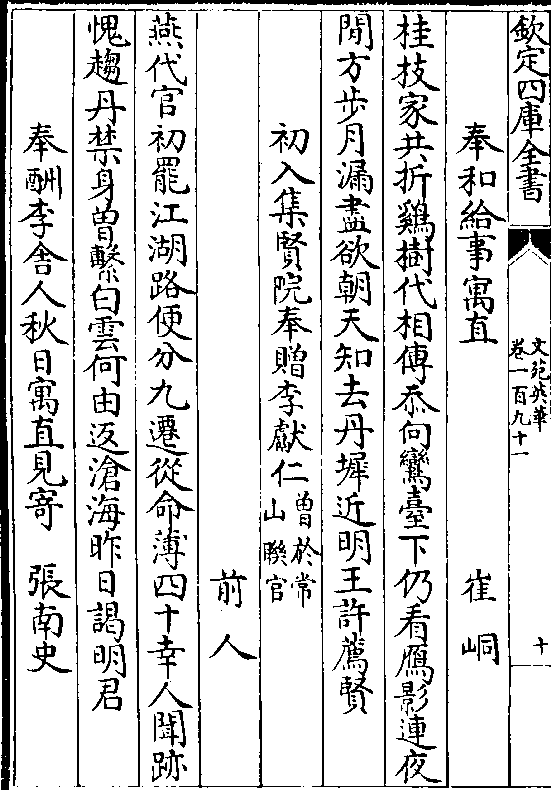 欽定四庫全書
文苑英華
卷一百九十一
十
奉和給事寓直　崔峒
桂枝家共折鷄樹代相傳忝向鸞臺下仍看鴈影連夜
閒方步月漏盡欲朝天知去丹墀近明王許薦賢
初入集賢院奉贈李獻仁曽於常山聨官
前人
燕代官初罷江湖路便分九遷從命薄四十幸人聞跡
愧趨丹禁身曽繫白雲何由返滄海昨日謁明君
奉酬李舍人秋日寓直見寄　張南史